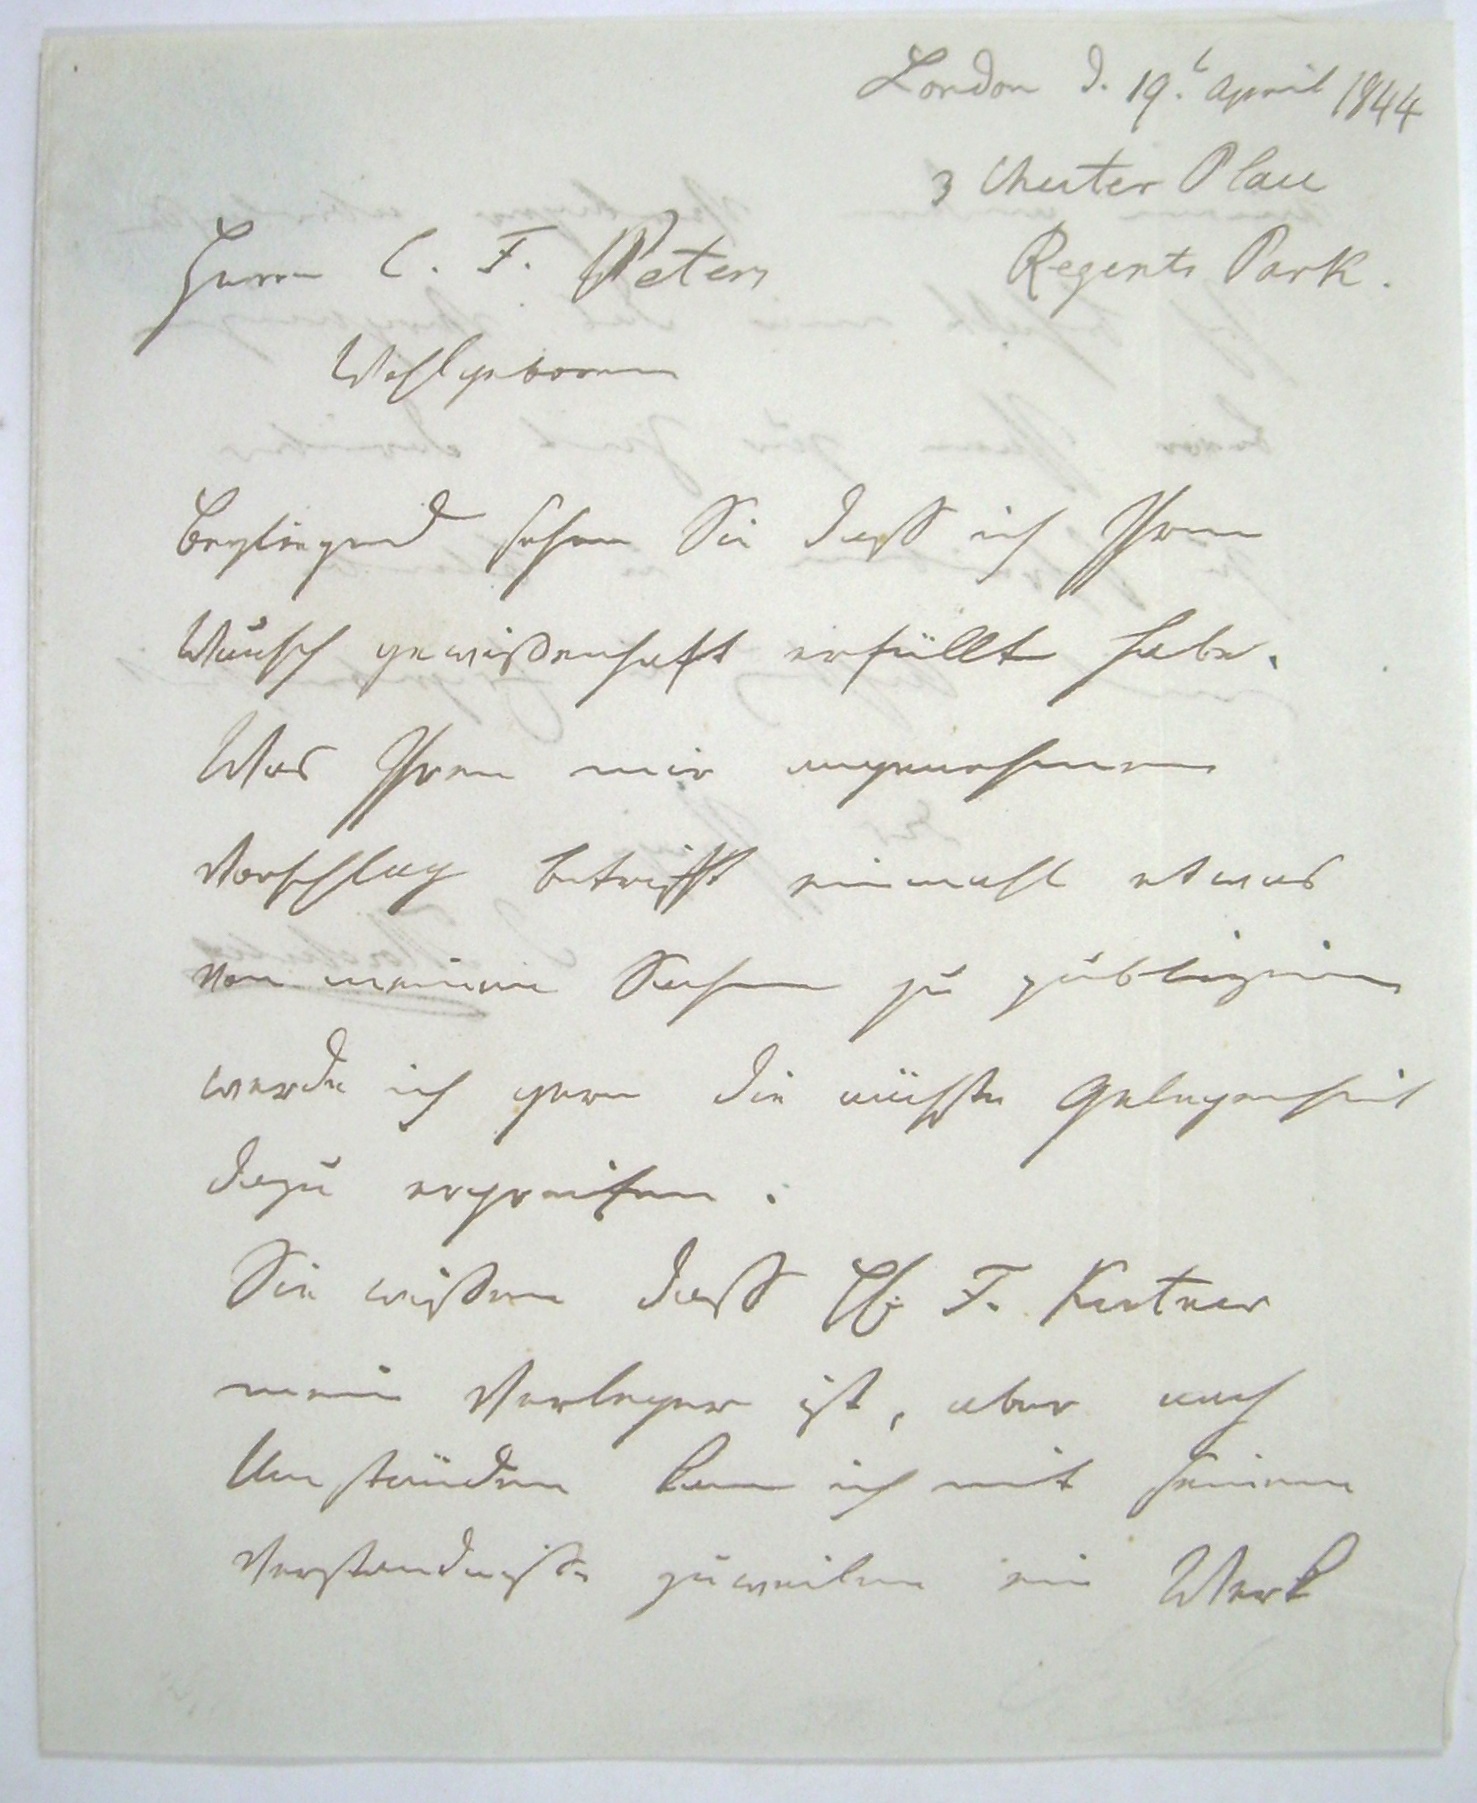 London d. 19.t April 1844
3 Chester Place
Regents Park.
Herrn C. F. Peters
Wohlgeboren
Beyliegend sehen Sie dass ich Ihren
Wunsch gewißenhaft erfüllt habe.
Was Ihren mir angenehmen
Vorschlag betrifft einmahl etwas
von meinen Sachen zu publiziren
werde ich gern die nächste Gelegenheit
dazu ergreifen.
Sie wißen dass H. F. Kistner
mein Verleger ist, aber nach
Umständen kann ich mit seinem
Verständniße zuweilen ein Werk